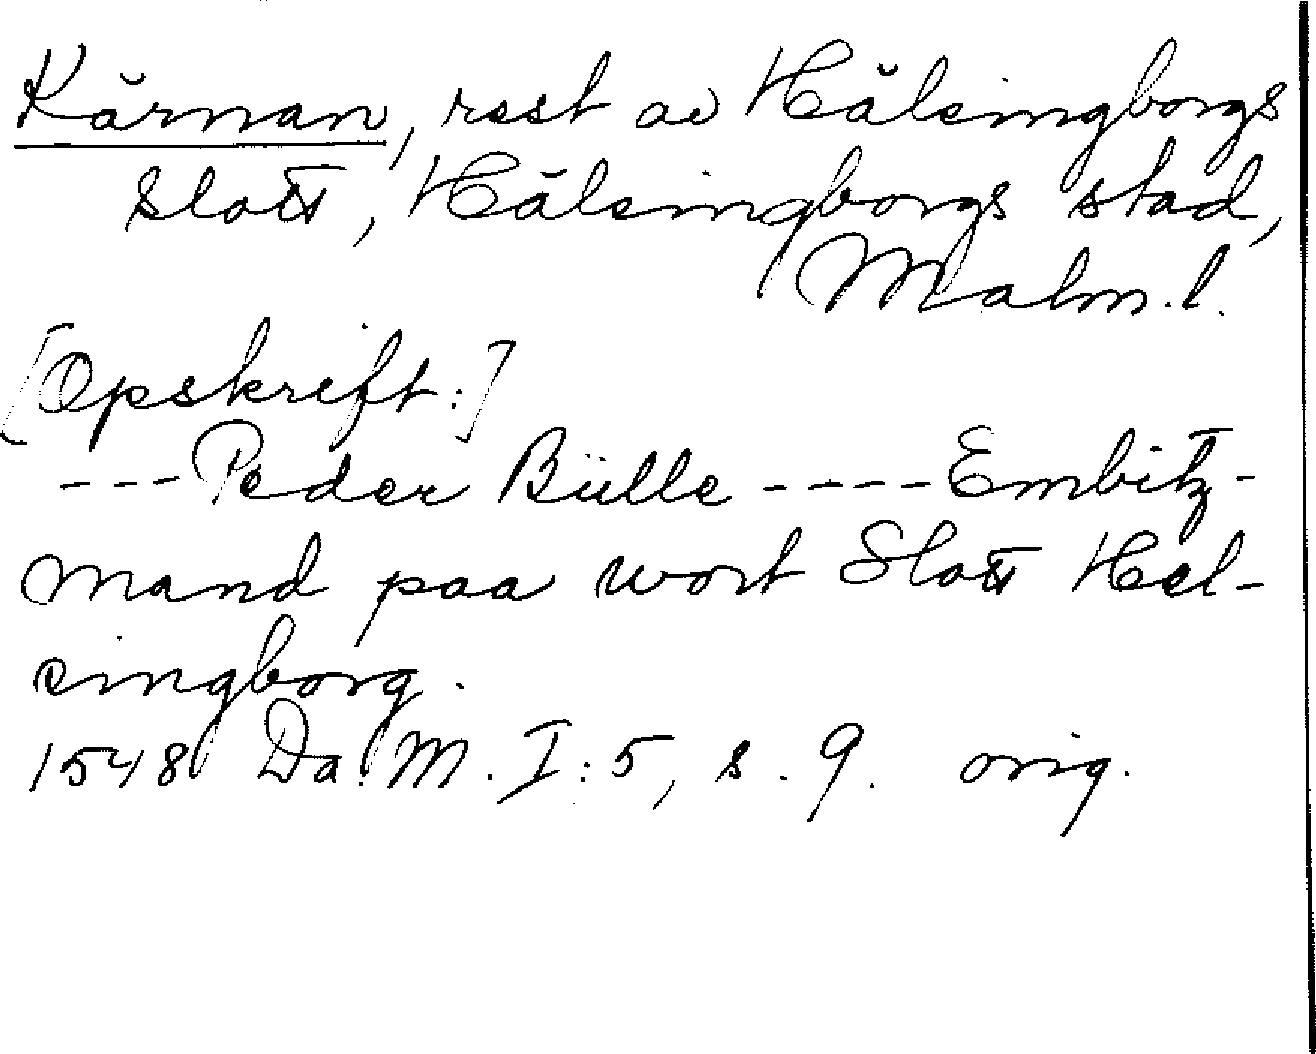 Kärnan, rest av Hälsingborgs
slott, Hälsingborgs stad,
Malm. l.
[Opskrift:]
--- Peder Bülle ---- Embitz-
mand paa wort Slott Hel-
singborg.
1548 Da. M. I:5, s. 9. orig.